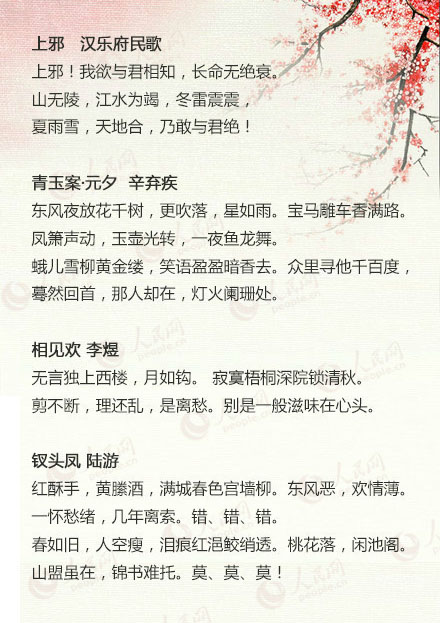 上邪　汉乐府民歌
上邪！我欲与君相知，长命无绝衰。
山无陵，江水为竭，冬雷震震，
夏雨雪，天地合，乃敢与君绝！
青玉案·元夕  辛弃疾
东风夜放花千树，更吹落，星如雨。宝马雕车香满路。
凤箫声动，玉壶光转，一夜鱼龙舞。
蛾儿雪柳黄金缕，笑语盈盈暗香去。众里寻他千百度，
蓦然回首，那人却在，灯火阑珊处。
相见欢 李煜
无言独上西楼，月如钩。 寂寞梧桐深院锁清秋。
剪不断，理还乱，是离愁。别是一般滋味在心头。
钗头凤 陆游
红酥手，黄縢酒，满城春色宫墙柳。东风恶，欢情薄。
一怀愁绪，几年离索。错、错、错。
春如旧，人空瘦，泪痕红浥鲛绡透。桃花落，闲池阁。
山盟虽在，锦书难托。莫、莫、莫！
人民网
people.cn